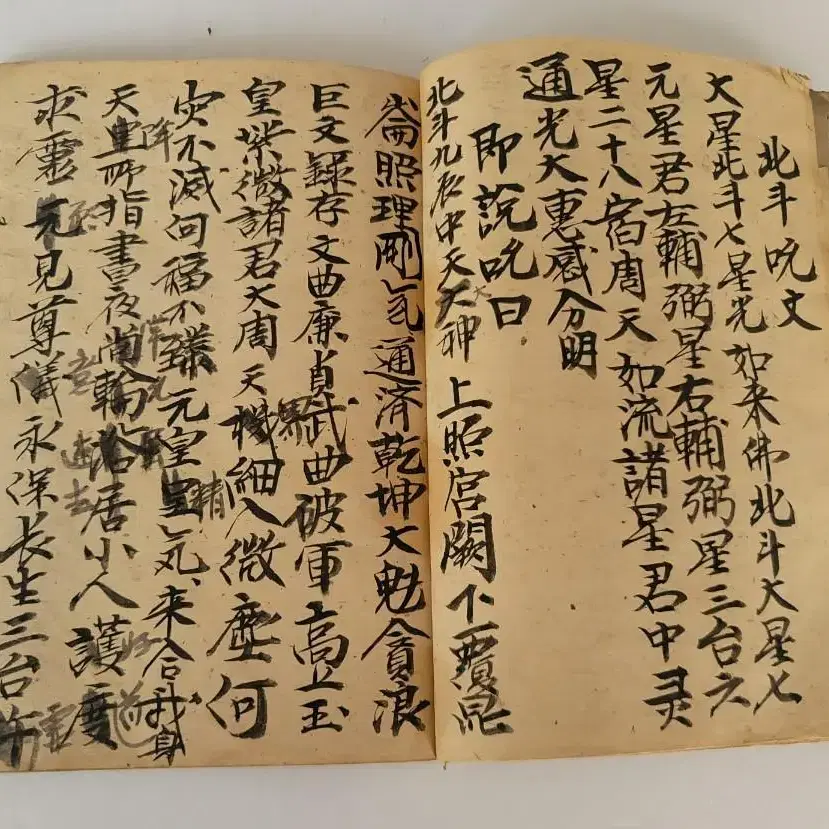 北斗呪文
大星北斗七星光如来佛北斗大星七
元星君左輔弼星右輔弼星三台六
星二十八宿周天如流諸星君中灵
通光大惠感分明
即說呪曰
北斗九辰中天天神上照宮闕下覆昆
崙照理剛气通済乾坤大魁貪浪
巨文錄存文曲廉貞武曲破軍高上玉
皇紫微諸君大周天機細入微塵何
灾不滅何福不臻元皇皇气来合我身
天皇所指晝夜常輪俗居小人護度
求靈元見尊儀永保长生三台